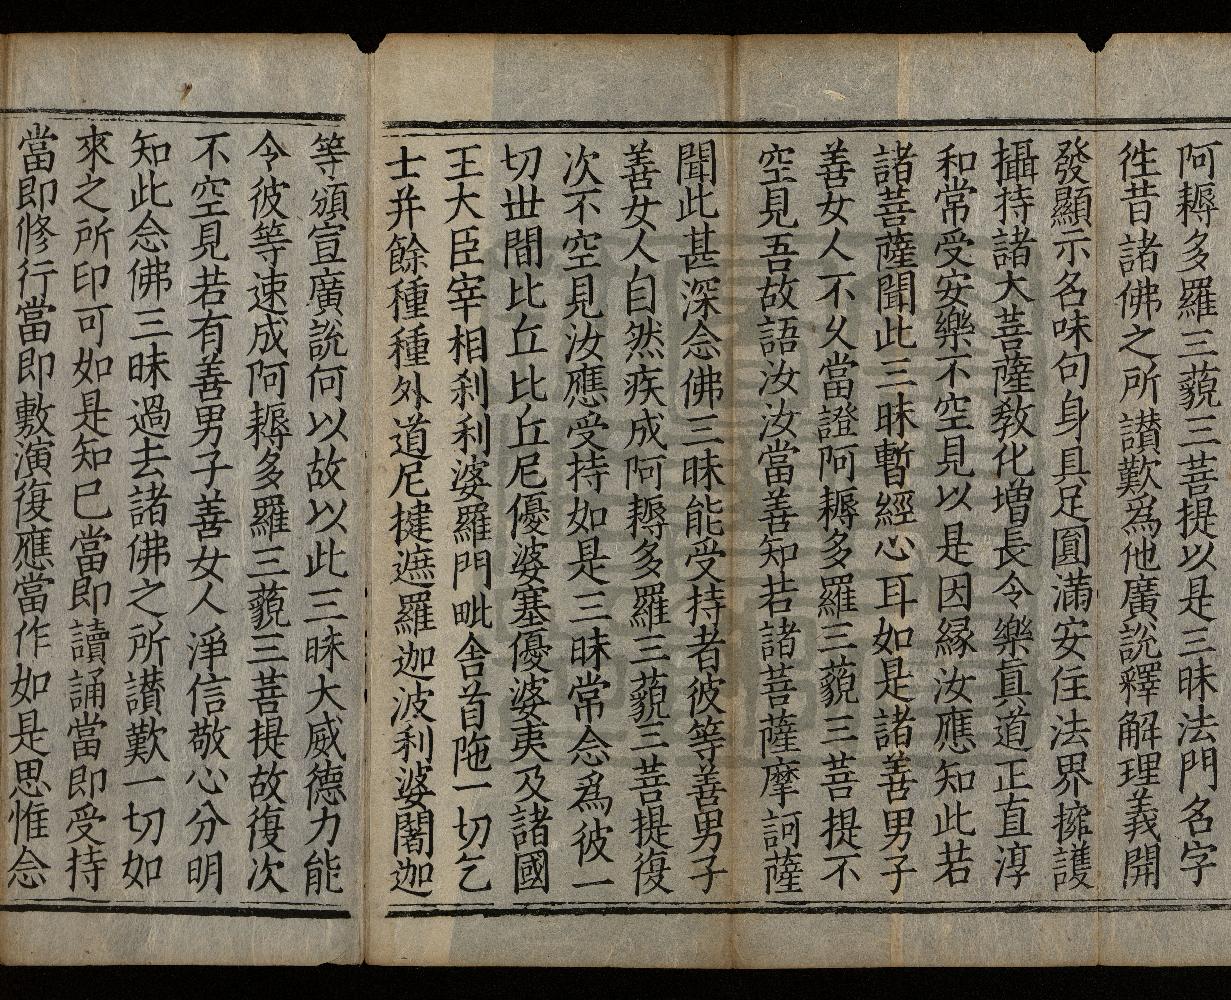 阿耨多羅三藐三菩提以是三昧法門名字
徃昔諸佛之所讃歎為他廣說釋解理義開
發顯示名味句身具足圎滿安住法界擁護
攝持諸大菩薩教化增長令樂真道正直淳
和常受安樂不空見以是因縁汝應知此若
諸菩薩聞此三昧暫經心耳如是諸善男子
善女人不乆當證阿耨多羅三藐三菩提不
空見吾故語汝汝當善知若諸菩薩摩訶薩
聞此甚深念佛三昧能受持者彼等善男子
善女人自然疾成阿耨多羅三藐三菩提復
次不空見汝應受持如是三昧常念為彼一
切世間比丘比丘尼優婆塞優婆夷及諸國
王大臣宰相剎利婆羅門毗舍首陁一切乞
士并餘種種外道尼揵遮羅迦波利婆闍迦
等頒宣廣說何以故以此三昧大威德力能
令彼等速成阿耨多羅三藐三菩提故復次
不空見若有善男子善女人淨信敬心分明
知此念佛三昧過去諸佛之所讃歎一切如
來之所印可如是知已當即讀誦當即受持
當即修行當即敷演復應當作如是思惟念